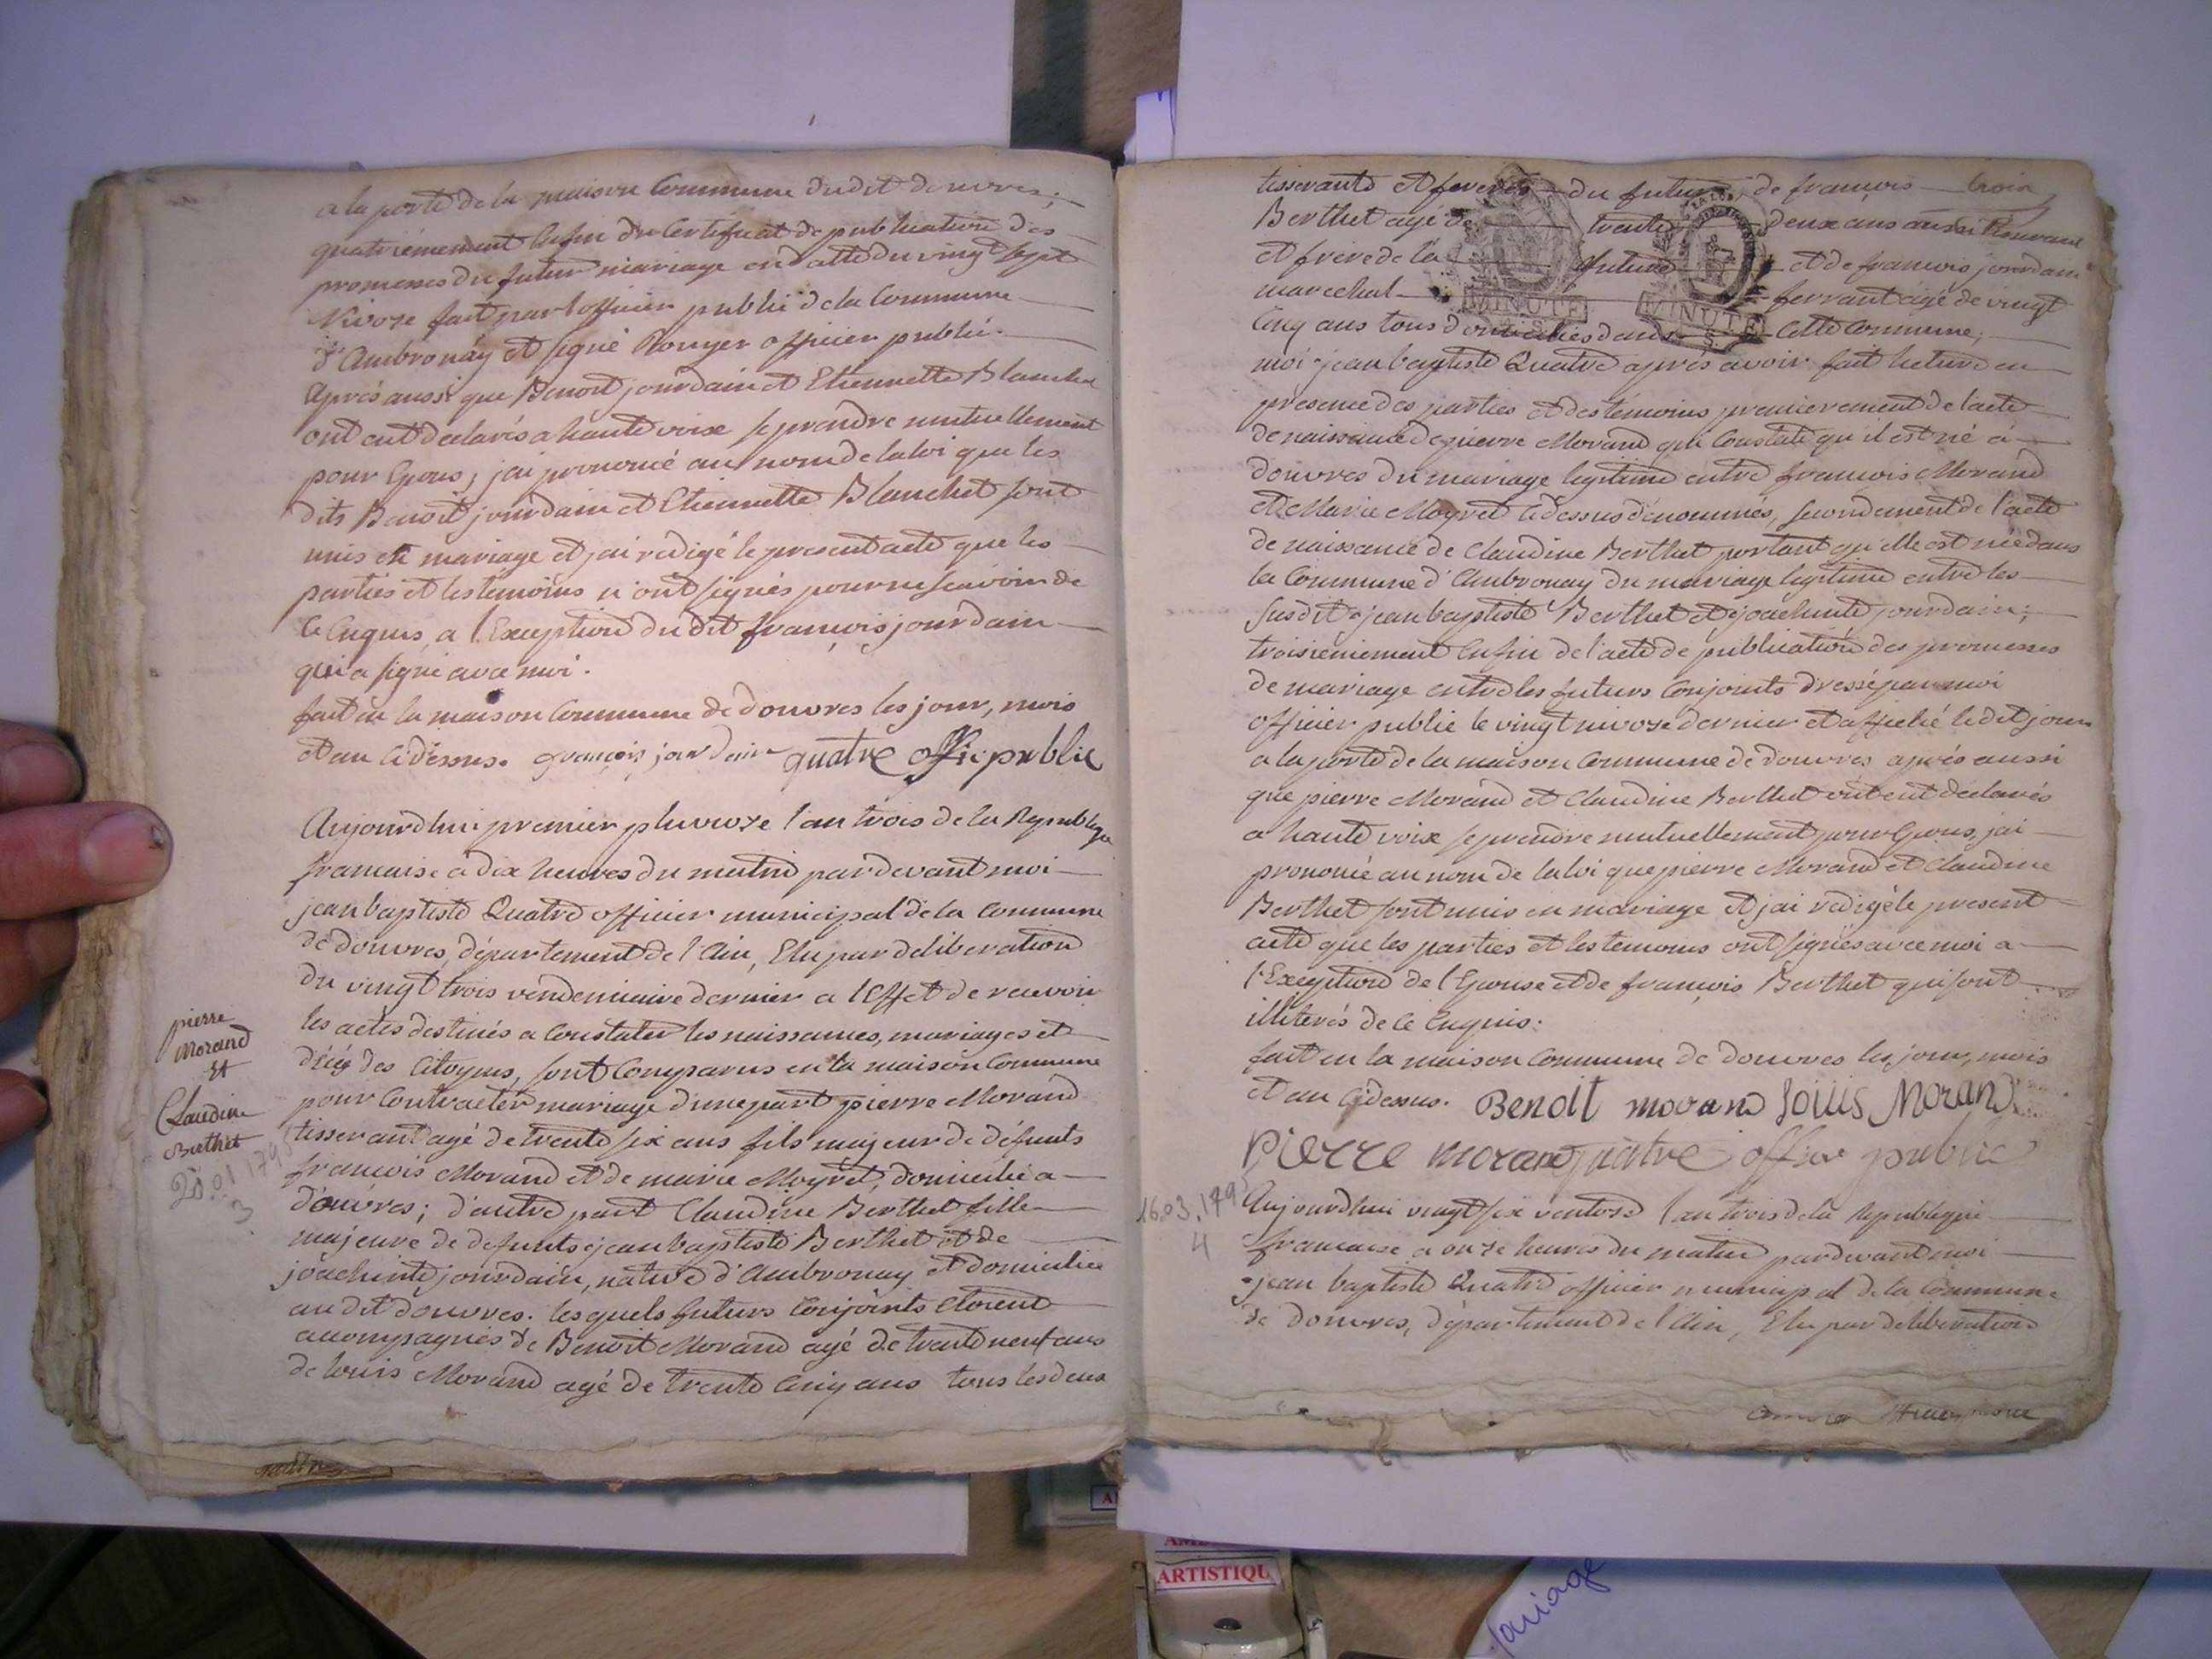 a la porte de la maison Commune dudit douvres;
quatriémement Enfin du Certificat de publication des
promesses du futur mariage en datte du vingt sept
Nivose fait par l'officier public de la Commune
d'Ambronay et signé Rouyer officier public.
Aprés aussi que Benoit jourdain et Etiennette Blanchet
ont eut declarés a haute voix se prendre mutuellement
pour Epous, jai prononcé au nom de la loi que les
dits Benoit jourdain et Etiennette Blanchet sont
unis en mariage et jai redigé le present acte que les
parties et les temoins n'ont signés pour ne scavoir de
ce Enquis, a l'Exception du dit francois jourdain
qui a signé avec moi.
fait en la maison Commune de douvres les jour, mois
et an ci dessus. francois jourdain quatre offic public
Aujourdhui premier pluviose l'an trois de la Republique
francaise a dix heures du matin pardevant moi
jean baptiste Quatre officier municipal de la Commune
de douvres, département de l'Ain, Elu par deliberation
du vingt trois vendemiaire dernier a l'Effet de recevoir
les actes destinés a Constater les naissances, mariages et
décés des Citoyens, sont Comparus en la maison Commune
pour Contracter mariage d'une part pierre Morand
tisserant agé de trente six ans fils majeur de défunts
francois Morand et de marie Moyret, domicilié a
douvres; d'autre part Claudine Berthet fille
majeure de defunts jean baptiste Berthet et de
joachinte jourdain, native d'Ambronay et domiciliée
au dit douvres. les quels futurs Conjoints Etoient
accompagnés de Benoit Morand agé de trente neuf ans
de louis Morand agé de trente Cinq ans tous les deux
pierre
Morand
Et
Claudine
Berthet
20.01 1795
3
tisserants et freres du futur, de francois trois
Berthet agé de trente deux ans aussi tisserant
et frere de la future et de francois jourdain
marechal ferrant agé de vingt
MINUTE
MINUTE
Cinq ans tous domiciliés dans Cette Commune;
moi jean baptiste Quatre aprés avoir fait lecture en
presence des parties et des témoins premierement de l'acte
de naissance de pierre Morand qui Constate qu'il est né a
douvres du mariage legitime entre francois Morand
et Marie Moyret ci dessus dénommés, secondement de l'acte
de naissance de Claudine Berthet portant qu'elle est née dans
la Commune d'Ambronay du mariage legitime entre les
susdit jean baptiste Berthet et joachinte jourdain;
troisiemement Enfin de l'acte de publication des promesses
de mariage entre les futurs Conjoints dressé par moi
officier public le vingt nivose dernier et affiché ledit jour
a la porte de la maison Commune de douvres aprés aussi
que pierre Morand et Claudine Berthet ont eut declarés
a haute voix se prendre mutuellement pour Epous, jai
prononcé au nom de la loi que pierre Morand et Claudine
Berthet sont unis en mariage et jai redigé le present
acte que les parties et les temoins ont signés avec moi a
l'Exception de l'Epouse et de francois Berthet qui sont
illiterés de ce Enquis.
fait en la maison Commune de douvres les jour, mois
et an ci dessus. Benoit morand Louis Morand
Pierre morand quatre officier public
16.03.1795
4
Aujourdhui vingt six ventose l'an trois de la Republique
francaise a onze heures du matin pardevant moi
jean baptiste Quatre officier municipal de la Commune
de douvres, département de l'Ain, Elu par deliberation
ARTISTIQU
mariage